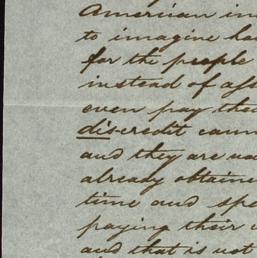 American in
to imagine ha
for the people
instead of ass
even pay the
discredit cann
and they are va
already obtaine
time and spe
paying their
and that is not